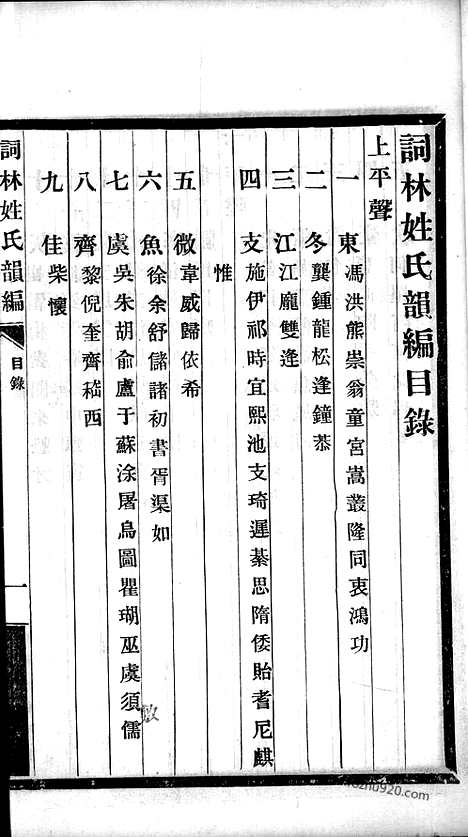 詞林姓氏韻編目錄
上平聲
一 東 馮洪熊崇翁童宮嵩叢隆同衷鴻功
二 冬 龔鍾龍松逢鐘恭
三 江 江龐雙逄
四 支 施伊祁時宜熙池支琦遲綦思隋倭貽耆尼麒
惟
五 微 韋威歸依希
六 魚 徐余舒儲諸初書胥渠如
七 虞 吳朱胡俞盧于蘇涂屠烏圖瞿瑚巫虞須儒
八 齊 黎倪奎齊嵇西
九 佳 柴懷
詞林姓氏韻編
目錄
一